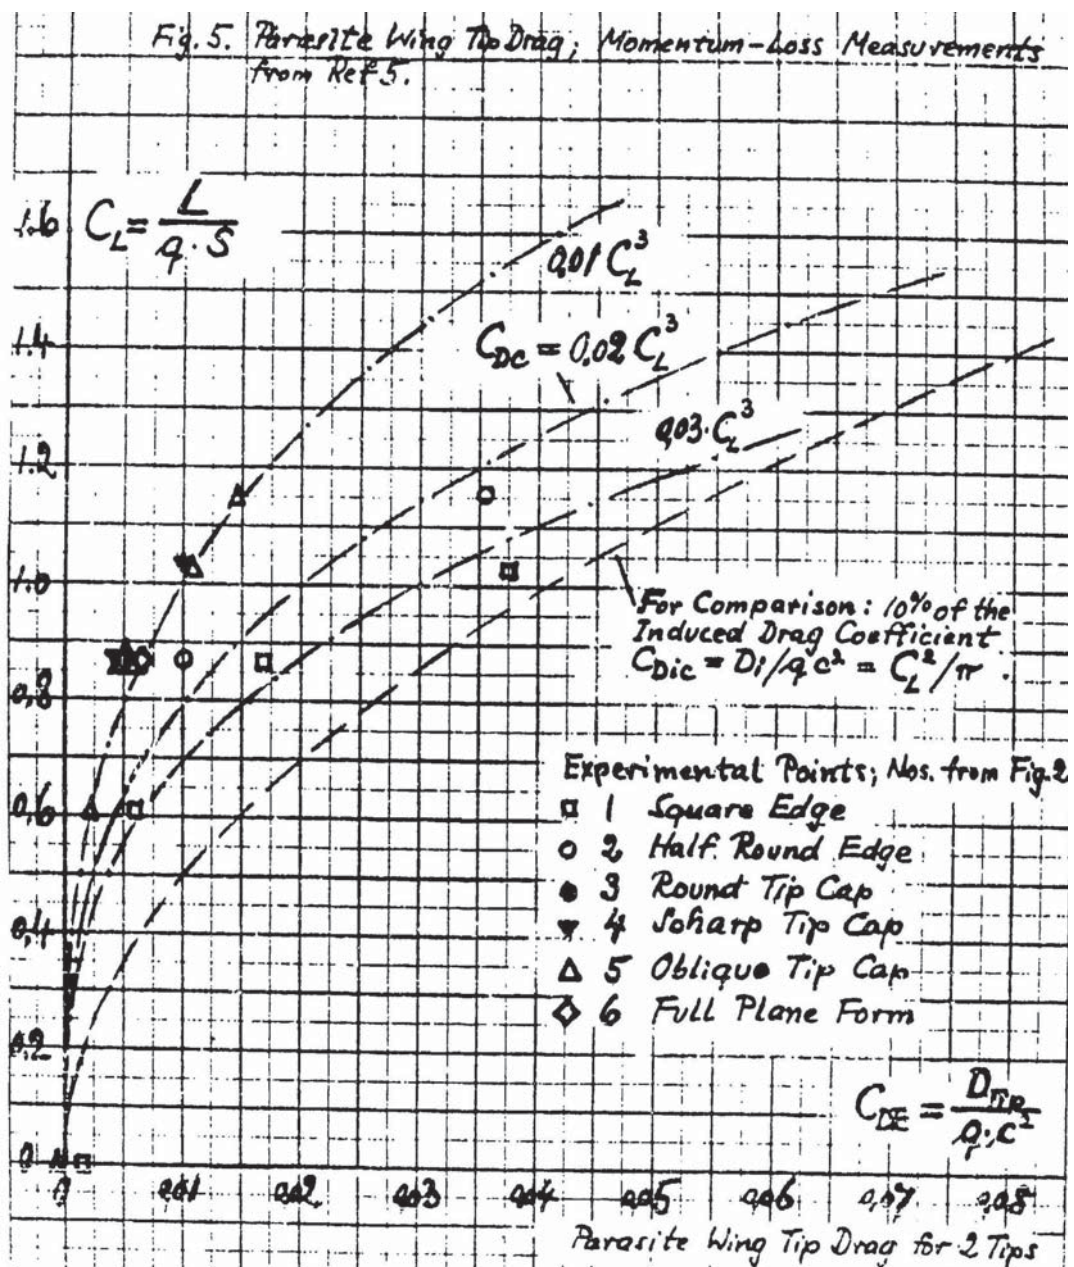 Fig. 5. Parasite Wing Tip Drag; Momentum-Loss Measurements
from Ref 5.
C_L = L / q · S
1.6
0,01 C_L^3
1.4
C_DC = 0,02 C_L^3
0,03 · C_L^3
1.2
1.0
For Comparison: 10% of the
Induced Drag Coefficient
C_Dic = Di/qc² = C_L²/π .
0,8
Experimental Points; Nos. from Fig.2
0,6
□ 1 Square Edge
○ 2 Half Round Edge
● 3 Round Tip Cap
0,4
▼ 4 Soharp Tip Cap
△ 5 Oblique Tip Cap
◇ 6 Full Plane Form
0,2
= D_Tip / q · c²
0
0 0,01 0,02 0,03 0,04 0,05 0,06 0,07 0,08
Parasite Wing Tip Drag for 2 Tips